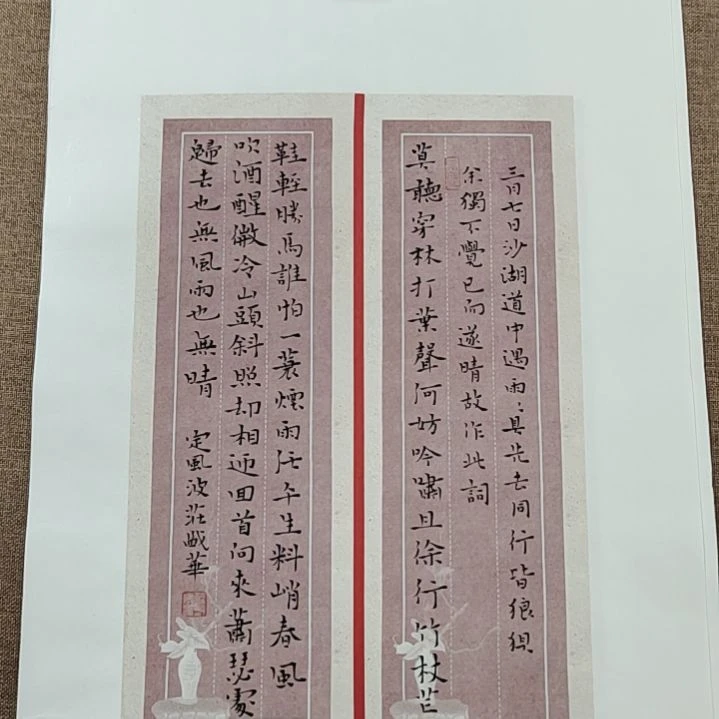 三月七日沙湖道中遇雨〻具先去同行皆狼狽
余獨不覺已而遂晴故作此詞
莫聽穿林打葉聲何妨吟嘯且徐行竹杖芒
鞋輕勝馬誰怕一蓑煙雨任平生料峭春風
吹酒醒微冷山頭斜照却相迎回首向來蕭瑟處
歸去也無風雨也無晴
定風波莊
華